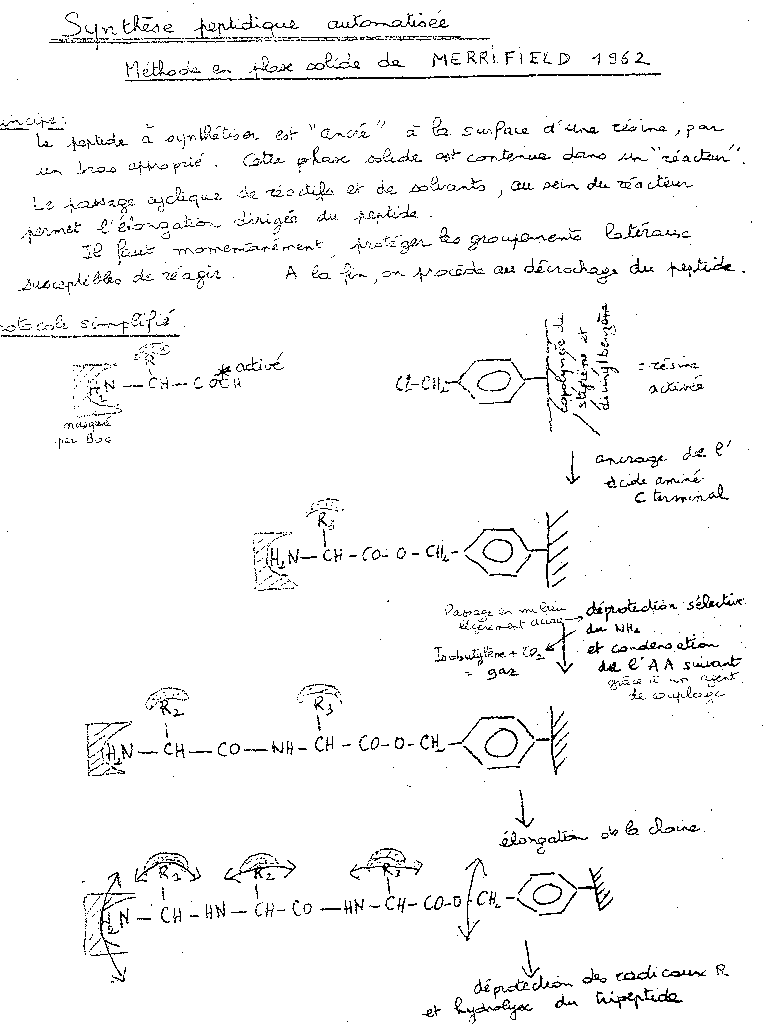 Synthèse peptidique automatisée
Méthode en phase solide de MERRIFIELD 1962
incipe:
Le peptide à synthétiser est "ancré" à la surface d'une résine, par
un bras approprié. Cette phase solide est contenue dans un "réacteur".
Le passage cyclique de réactifs et de solvants, au sein du réacteur
permet l'élongation dirigée du peptide.
Il faut momentanément protéger les groupements latéraux
susceptibles de réagir. A la fin, on procède au décrochage du peptide.
rotocole simplifié
R
activé
H2N — CH — COOH
masqué
par Boc
Cl-CH2
copolymère de
styrène et
divinylbenzène
= résine
activée
ancrage de l'
acide aminé
C terminal
R3
H2N — CH - CO - O - CH2
Passage en milieu
légèrement acide
Isobutylène + CO2
= gaz
déprotection sélective
du NH2
et condensation
de l'AA suivant
grâce à un agent
de couplage
R2 R3
H2N — CH — CO — NH — CH - CO - O - CH2
élongation de la chaine
R1 R2 R3
H2N — CH — HN — CH — CO — HN — CH — CO - O - CH2
déprotection des radicaux R
et hydrolyse du tripeptide